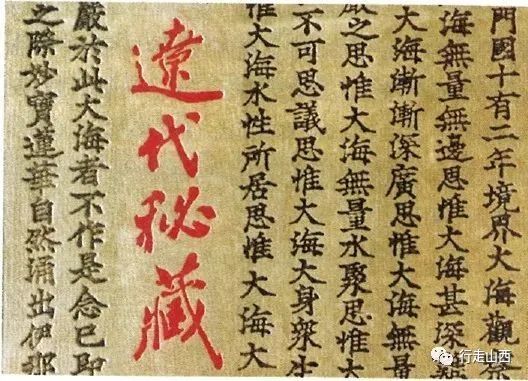 門國十有二年境界大海觀
海無量無邊思惟大海甚深難
大海漸漸深廣思惟大海無量
之思惟大海無量水聚思惟大
不可思議思惟大海大身眾生
惟大海水性所居思惟大海大
遼代秘藏
嚴於此大海者不作是念已即
之際妙寶蓮華自然涌出伊那
行走山西